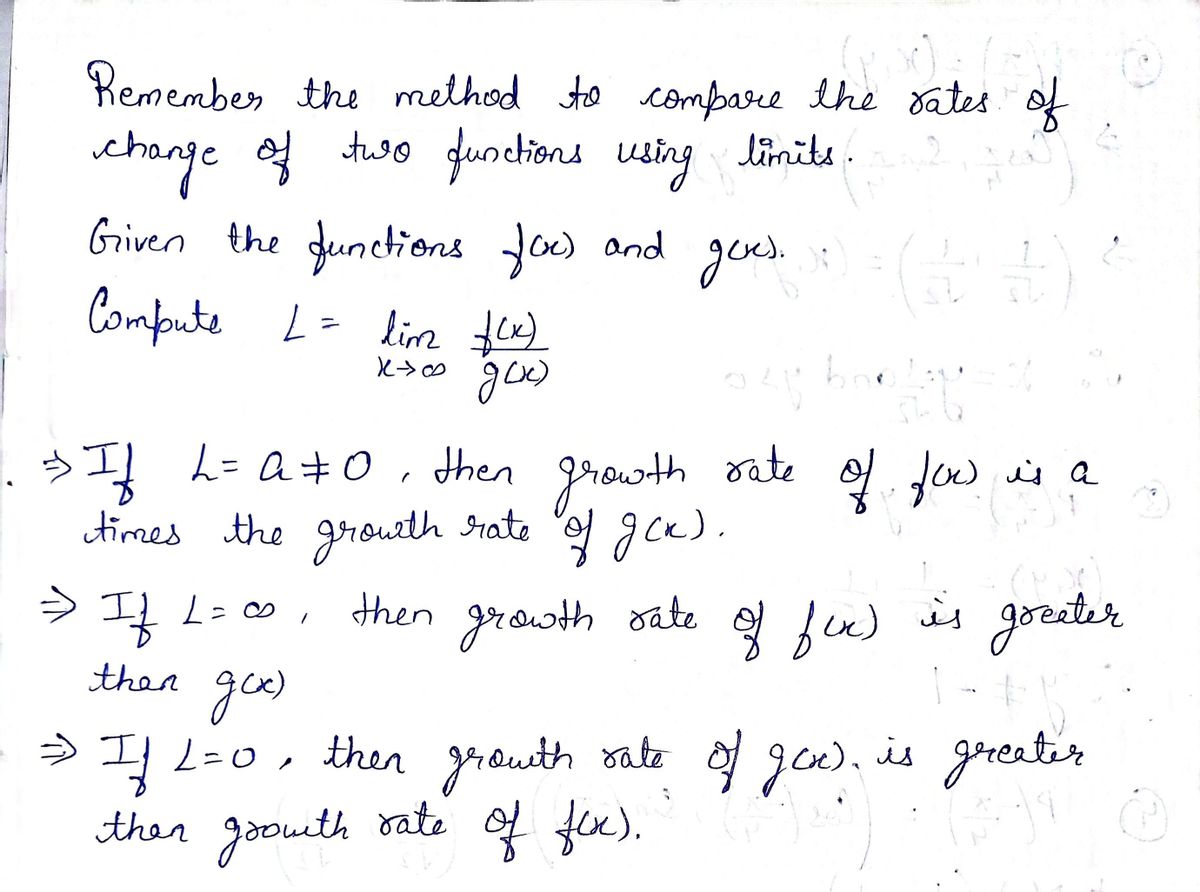 Remember the method to compare the rates of
change of two functions using limits.
Given the functions f(x) and g(x).
Compute L = lim f(x)
x→∞ g(x)
⇒ If L = a ≠ 0, then growth rate of f(x) is a
times the growth rate of g(x).
⇒ If L = ∞, then growth rate of f(x) is greater
than g(x)
⇒ If L = 0, then growth rate of g(x). is greater
than growth rate of f(x).